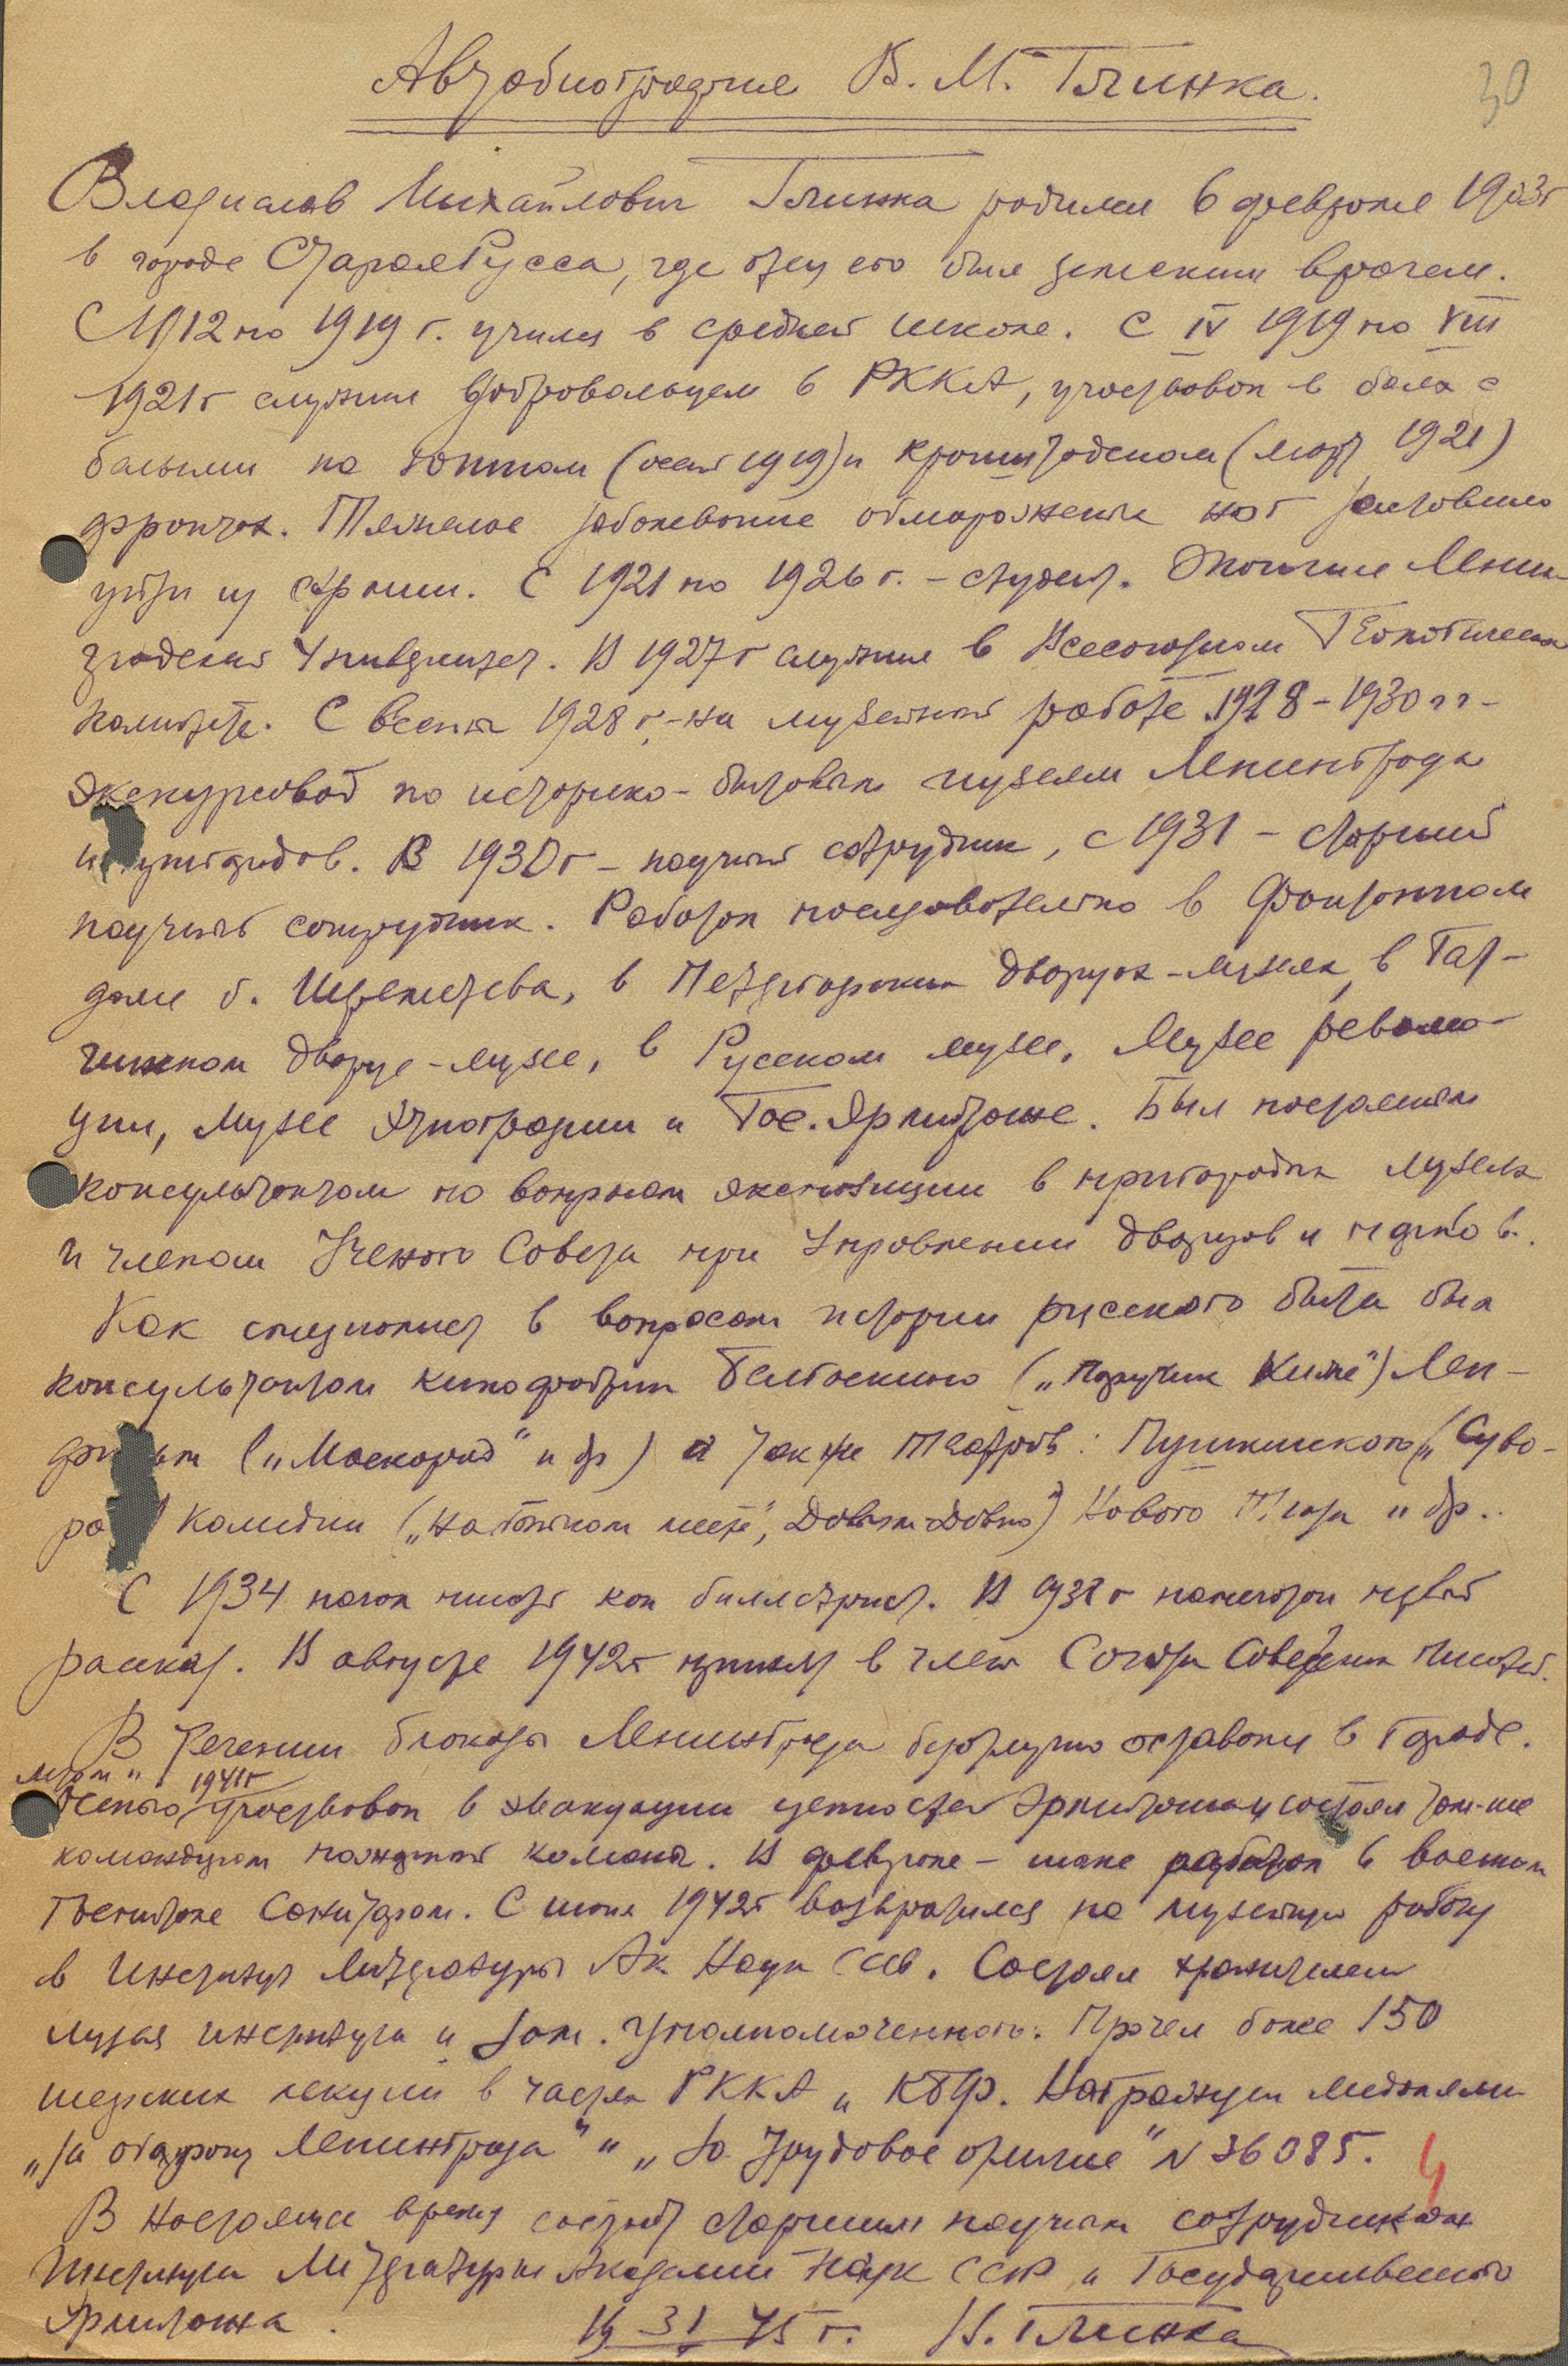 30
Автобиография В. М. Глинка.
Владислав Михайлович Глинка родился 6 февраля 1903г
в городе Старая Русса, где отец его был земским врачем.
С 1912 по 1919 г. учился в средней школе. С IV 1919 по VIII
1921г служил добровольцем в РККА, участвовал в боях с
белыми на южном (осень 1919) и кронштадском (март 1921)
фронтах. Тяжелое заболевание обморожения ног заставило
уйти из армии. С 1921 по 1926 г. – студент. Окончил Ленин-
градский Университет. В 1927г служил в Всесоюзном Геологическом
Комитете. С весны 1928 г. – на музейной работе. 1928 – 1930 гг –
экскурсовод по историко-бытовым музеям Ленинграда
и пригородов. В 1930г – научный сотрудник, с 1931 – старший
научный сотрудник. Работал последовательно в Фонтанном
доме б. Шереметева, в Петергофских дворцах-музеях, в Гат-
чинском дворце-музее, в Русском музее, Музее револю-
ции, Музее Этнографии и Гос. Эрмитаже. Был постоянным
консультантом по вопросам экспозиции в пригородных музеях
и членом Ученого Совета при Управлении дворцов и парков.
Как специалист в вопросах истории русского быта был
консультантом кинофабрик Белгоскино („Поручик Киже") Лен-
фильм („Маскарад" и др) а так же Театров: Пушкинского („Суво-
ров") Комедии („На бойком месте", Давным-Давно") Нового Театра и др..
С 1934 начал писать как беллетрист. В 1938г напечатал первый
рассказ. В августе 1942г принят в члены Союза Советских Писателей.
В течении блокады Ленинграда безотлучно оставался в городе.
Летом и
Осенью 1941г участвовал в эвакуации ценностей Эрмитажа и состоял там-же
командиром пожарной команды. В феврале – июне работал в военном
госпитале Санитаром. С июня 1942г возвратился на музейную работу
в Институт Литературы Ак. Наук СССР. Состоял хранителем
музея института и зам. Уполномоченного. Прочел более 150
шефских лекций в частях РККА и КБФ. Награжден медалями
„За оборону Ленинграда" и „За трудовое отличие" N 36085.
В настоящее время состоит старшим научным сотрудником
Института Литературы Академии Наук СССР и Государственного
Эрмитажа.
19 31 45 г. В. Глинка